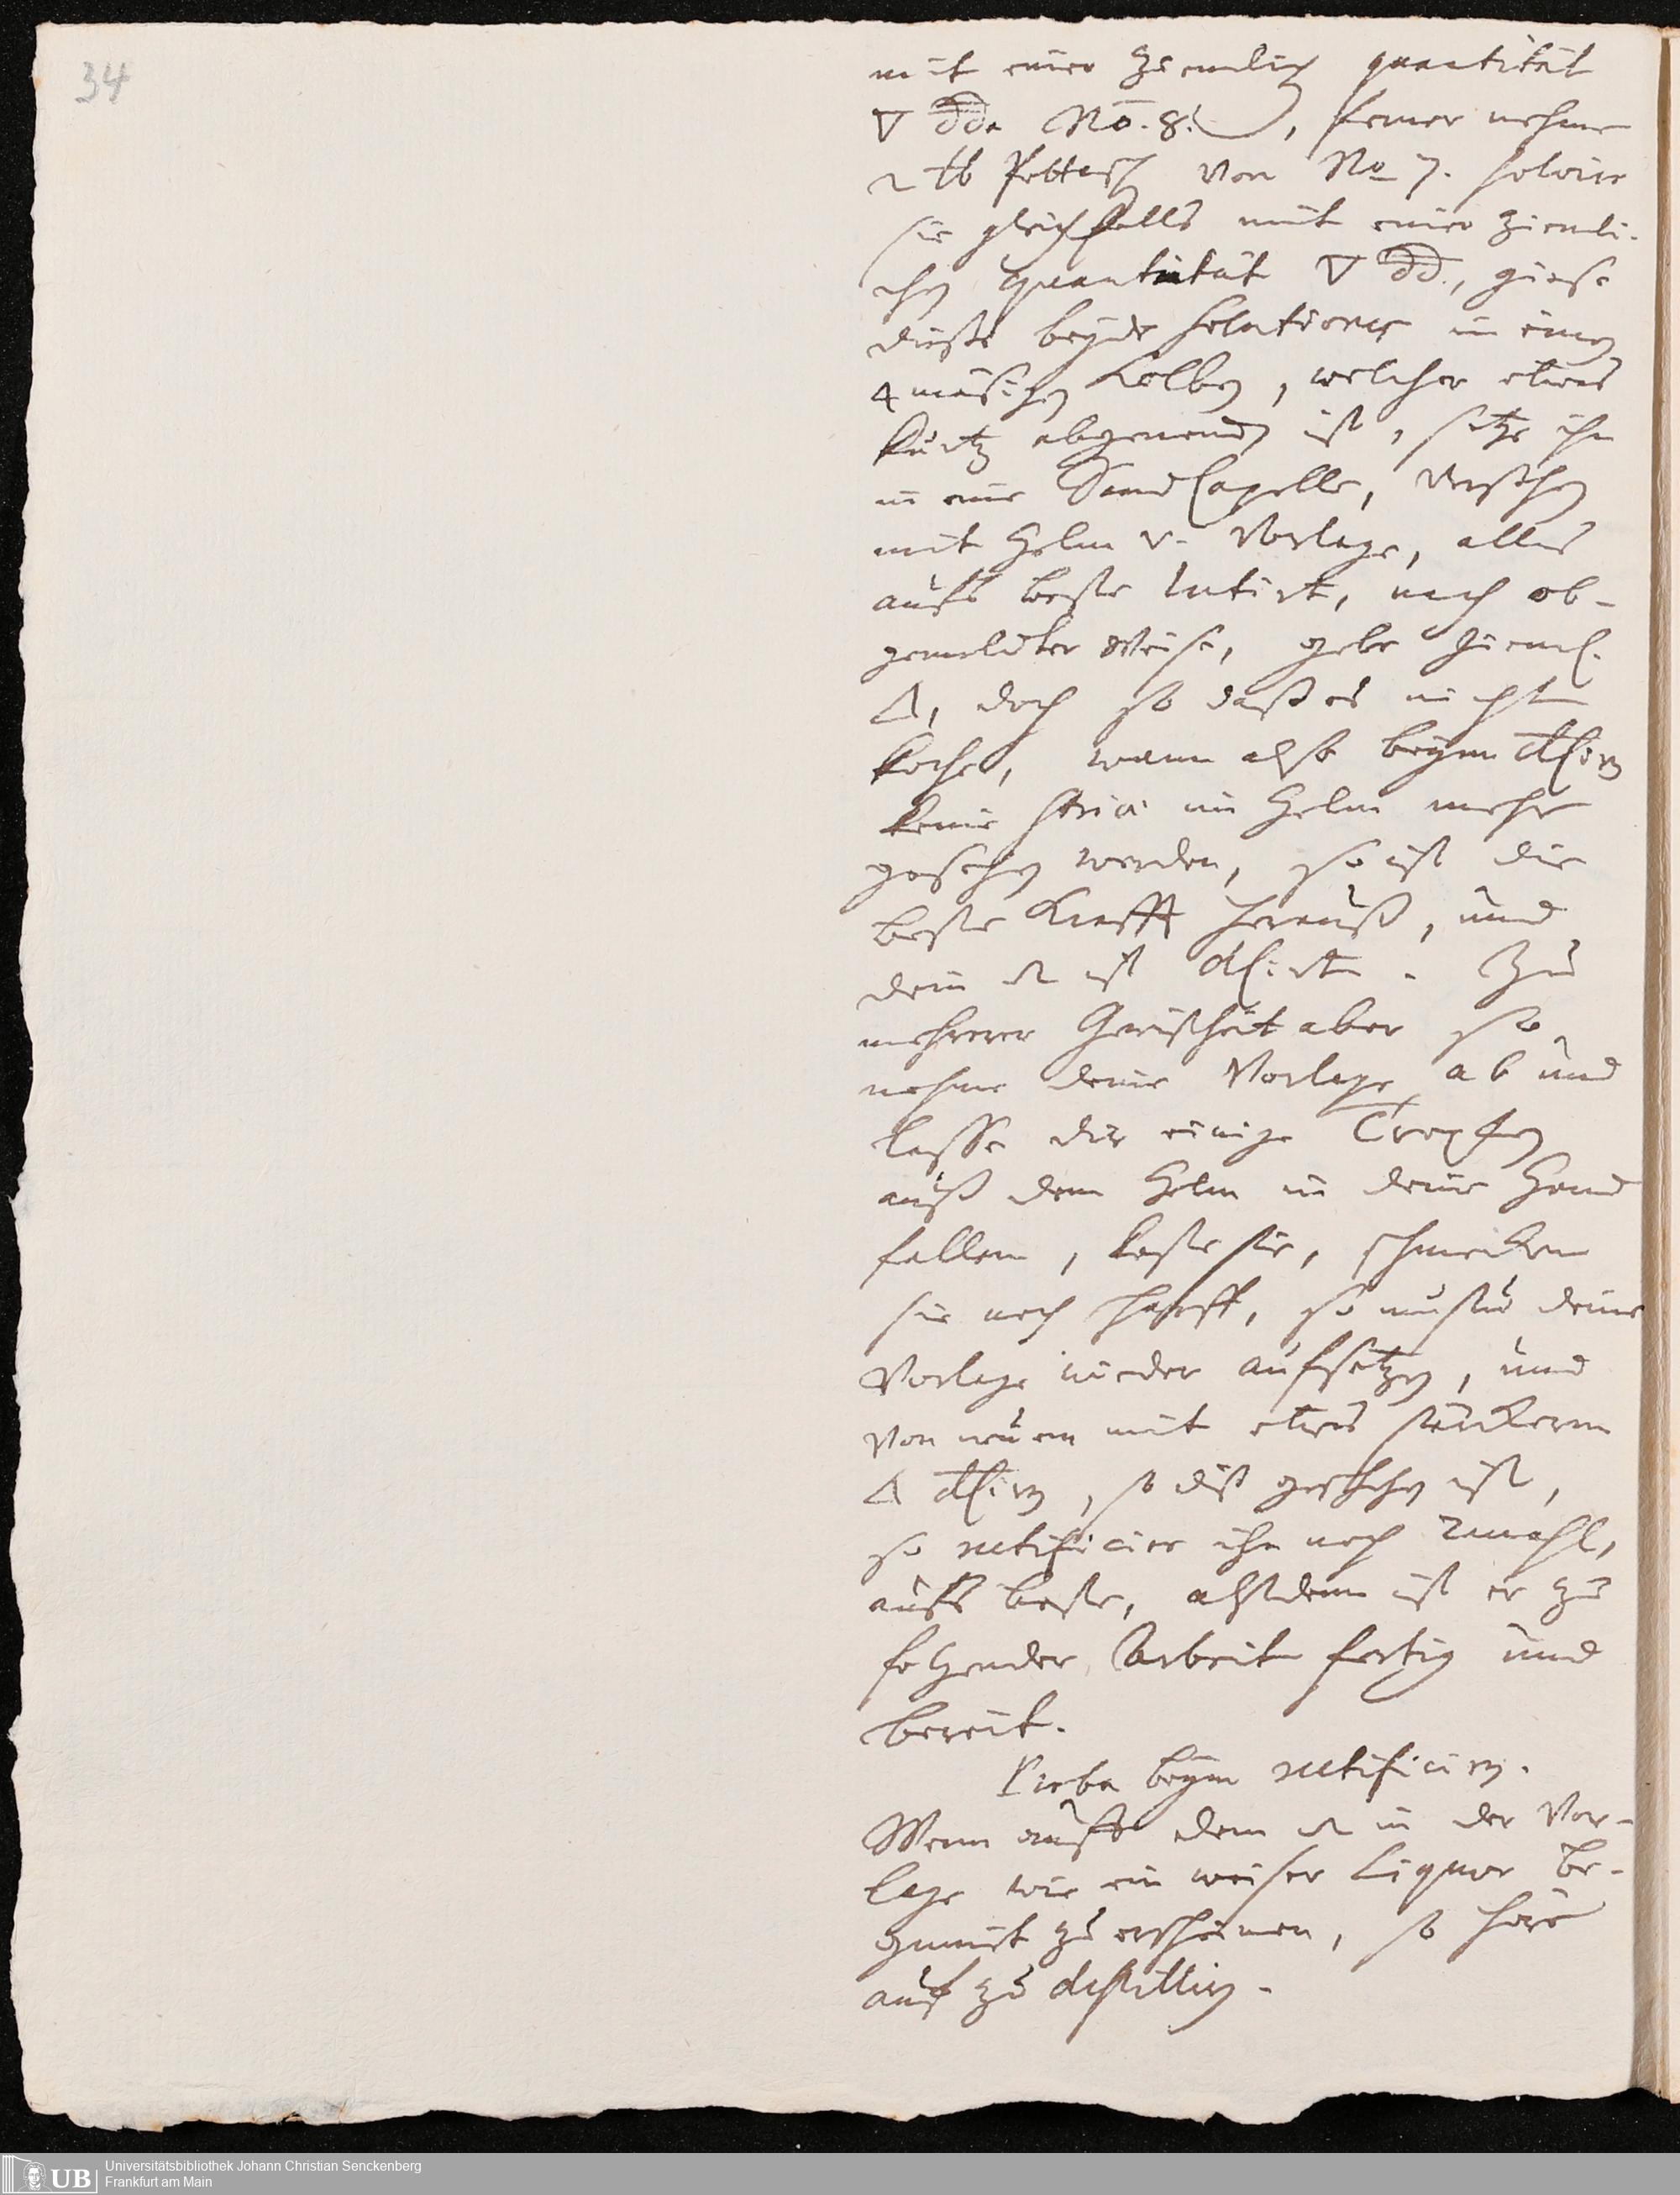 34
mit einer ziemlich quantität
🜄 dd. No. 8.), ferner nehme
2 ℔ Pottasch von No 7. solvire
sie gleichfalls mit einer ziemli-
chen quantität 🜄 dd., giese
diese beyde solutiones in einen
4 mäsichen Kolben, welcher etwas
kurtz abgenomen ist, setze ihn
in eine SandCapelle, versehen
mit Helm u. Vorlage, alles
aufs beste lutirt, nach ob-
gemeldter Weise, gebe zieml.
🜂, doch so daß es nicht
koche, wann also beym dlirn
keine striä im Helm mehr
gesehen werden, so ist die
beste Krafft herauß, und
dein ist dlirt. Zu
mehrerer Gewißheit aber so
nehme deine Vorlage ab und
lasse dir einige Tropfen
auß dem Helm in deine Hand
fallen, koste sie, schmecken
sie noch scharff, so mustu deine
Vorlage wieder aufsetzen, und
von neuem mit etwas stärckerm
🜂 dlirn, so diß geschehen ist,
so rectificire ihn noch 2mahl,
aufs beste, alsdann ist er zu
folgender Arbeit fertig und
bereit.
Probe beym rectificirn.
Wenn auff dem in der Vor-
lage wie ein weiser Liquor be-
ginnet zu erscheinen, so höre
auf zu destillirn.
Universitätsbibliothek Johann Christian Senckenberg
Frankfurt am Main
UB